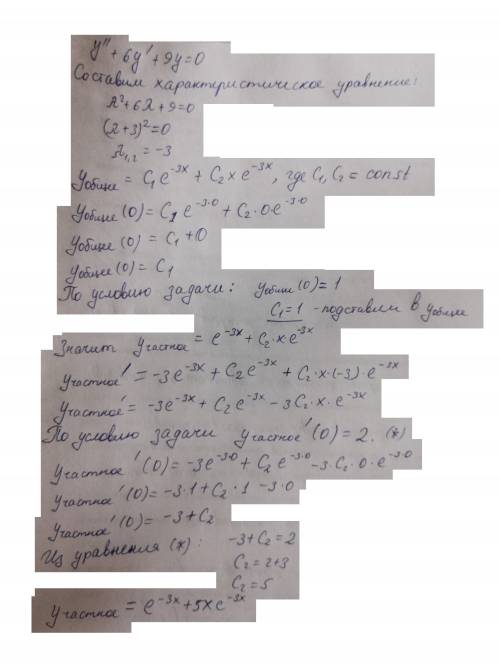 y'' + 6y' + 9y = 0
Составим характеристическое уравнение:
λ² + 6λ + 9 = 0
(λ+3)² = 0
λ₁,₂ = -3
Yобщее = C₁e^{-3x} + C₂xe^{-3x}, где C₁, C₂ = const
Yобщее (0) = C₁e^{-3·0} + C₂·0·e^{-3·0}
Yобщее (0) = C₁ + 0
Yобщее (0) = C₁
По условию задачи: Yобщее (0) = 1
C₁ = 1 - подставим в Yобщее
Значит Yчастное = e^{-3x} + C₂·x·e^{-3x}
Yчастное' = -3e^{-3x} + C₂e^{-3x} + C₂·x·(-3)·e^{-3x}
Yчастное' = -3e^{-3x} + C₂e^{-3x} - 3C₂·x·e^{-3x}
По условию задачи Yчастное'(0) = 2. (*)
Yчастное'(0) = -3e^{-3·0} + C₂e^{-3·0} - 3·C₂·0·e^{-3·0}
Yчастное'(0) = -3·1 + C₂·1 - 3·0
Yчастное'(0) = -3 + C₂
Из уравнения (*): -3 + C₂ = 2
C₂ = 2+3
C₂ = 5
Yчастное = e^{-3x} + 5xe^{-3x}